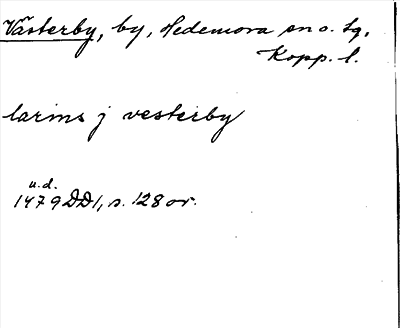 Västerby, by, Hedemora sn o. tg,
Kopp. l.
larins j vesterby
u.d.
1479 DD1, s. 128 or.